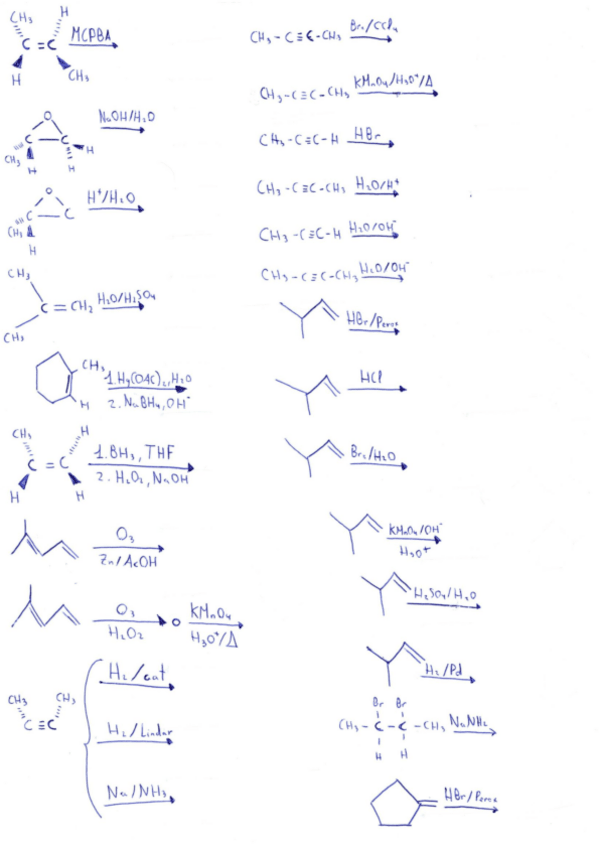 CH₃ H
C=C MCPBA
H CH₃
O
C C H NaOH/H₂O
CH₃ H H
O
C C H⁺/H₂O
CH₃
H
CH₃
C=CH₂ H₂O/H₂SO₄
CH₃
CH₃ 1.Hg(OAC)₂,H₂O
H 2.NaBH₄,OH⁻
CH₃ H
C=C 1.BH₃,THF
H H 2.H₂O₂,NaOH
O₃
Zn/AcOH
O₃ o KMnO₄
H₂O₂ H₃O⁺/Δ
CH₃ CH₃
C≡C
H₂/cat
H₂/Lindlar
Na/NH₃
CH₃-C≡C-CH₃ Br₂/CCl₄
CH₃-C≡C-CH₃ KMnO₄/H₃O⁺/Δ
CH₃-C≡C-H HBr
CH₃-C≡C-CH₃ H₂O/H⁺
CH₃-C≡C-H H₂O/OH⁻
CH₃-C≡C-CH₃ H₂O/OH⁻
HBr/Perox
HCl
Br₂/H₂O
KMnO₄/OH⁻
H₃O⁺
H₂SO₄/H₂O
H₂/Pd
Br Br
CH₃-C-C-CH₃ NaNH₂
H H
HBr/Perox